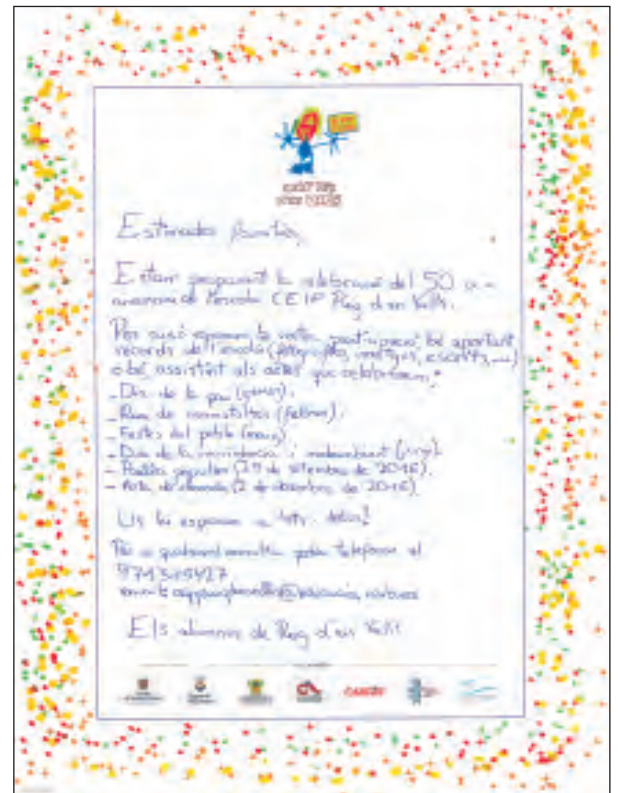 Estimades famílies,
Estam preparant la celebració del 50 a-
niversari de l'escola CEIP Puig d'en Valls.
Per això esperam la vostra participació bé aportant
records de l'escola (fotografies, imatges, escrits,...)
o bé, assistint als actes que celebrarem:
- Dia de la pau (gener).
- Rua de carnestoltes (febrer).
- Festes del poble (març)
- Dia de la convivència i (juny).
- Paella popular (25 de setembre de 2016).
- Acte de clausura (2 de desembre de 2016).
Us hi esperam a tots i totes!
Per a qualsevol consulta podeu telefonar al
971315427
Els alumnes de Puig d'en Valls